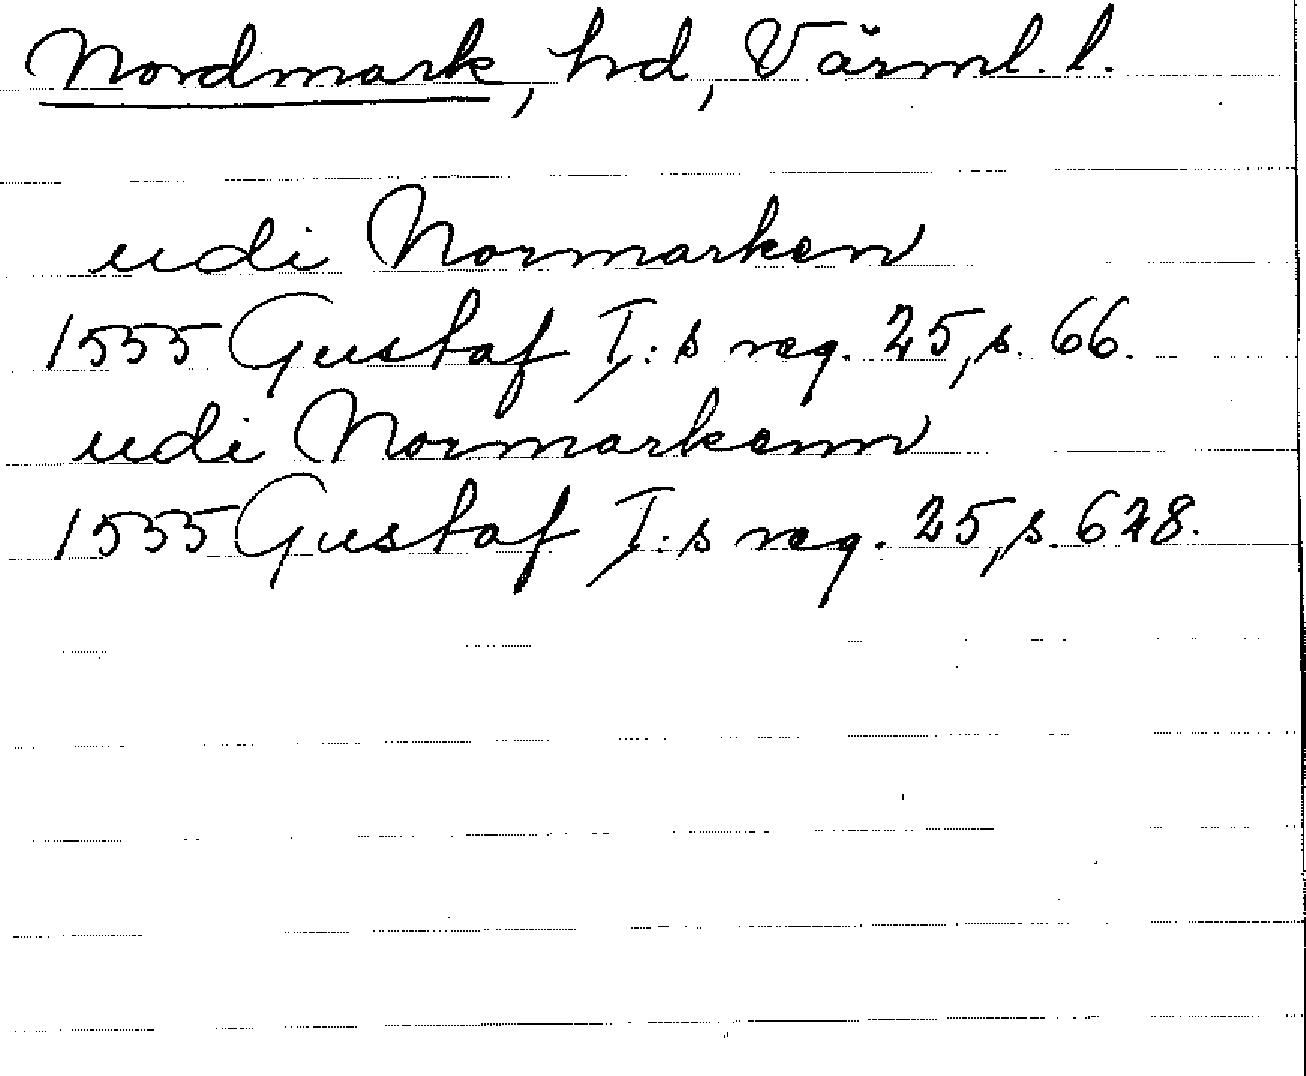 Nordmark, hd, Värml. l.
udi Normarken
1555 Gustaf I:s reg. 25, s. 66.
udi Normarkenn
1555 Gustaf I:s reg. 25, s. 628.